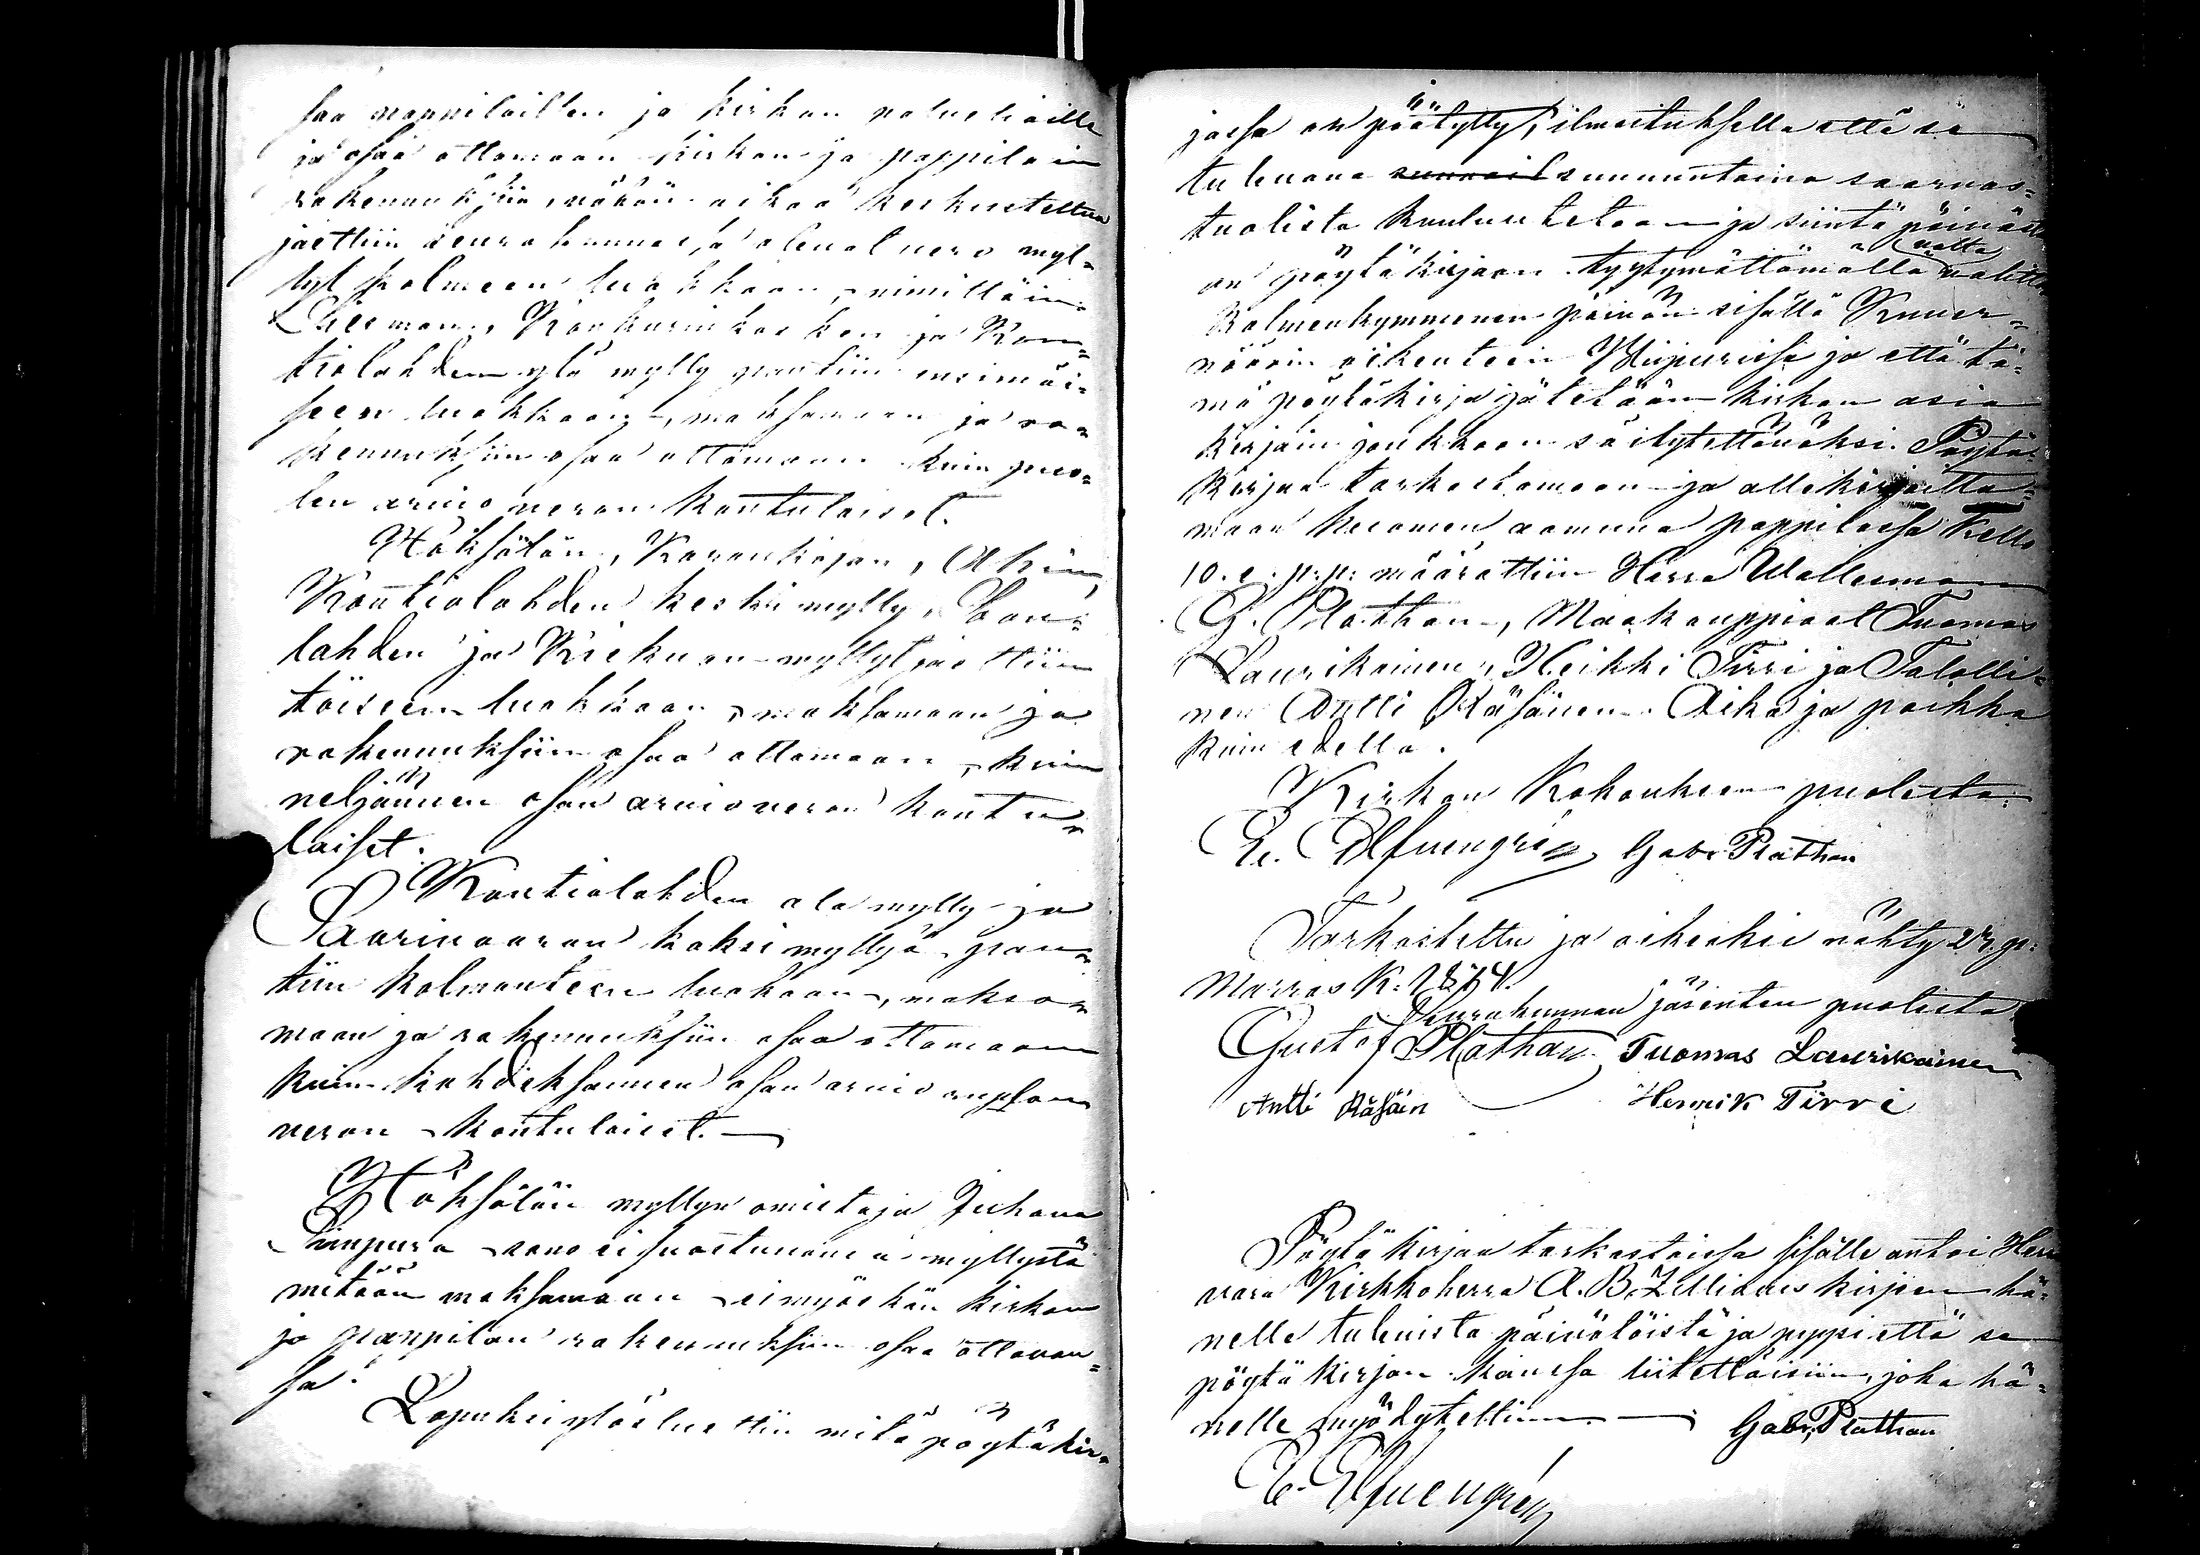 saa pappiloillen ja kirkon palvelioille
ja osaa ottamaan kirkon ja pappilain
rakennuksiin, vähän aikaa keskusteltua
jaettiin seurakunnassa olevat vero myl-
lyt kolmeen luokkaan, nimittäin:
Kontiolahden ylä mylly pantiin ensimäi-
seen luokkaan, maksamaan ja ra-
kennuksiin osaa ottamaan kuin puo-
len arvio veron kontulaiset.
Häksälän, Karankajan, Akin,
Kontiolahden keski mylly,
lahden ja Kiekuan myllyt jaettiin
toiseen luokkaan, maksamaan ja
rakennuksiin osaa ottamaan, kuin
neljännen osan arvio veron kontu-
laiset.
Kontiolahden ala mylly ja
Saarivaaran kaksi myllyä pan-
tiin kolmanteen luokaan, maksa-
maan ja rakennuksiin osaa ottamaan
kuin kahdeksannen osan arvio ruplan
veron kontulaiset.
Häksälän myllyn omistaja Juhana
Simpura sano ei suostuvansa myllystä
mitään maksamaan ei myöskän kirkon
ja pappilan rakennuksiin osaa ottavan-
sa.
Lopuksi ylösluettiin mitä pöytäkir-
jassa on päätytty, ilmoituksella että se
tulevana sunnuntaina saarnas-
tuolista kuulutetaan ja siintä päivästä
on pöytäkirjaan tyytymättömällä valta valitta
Kolmenkymmenen päivän sisällä Kuver-
nöörin oikeuteen Wiipurissa ja että tä-
mä pöytäkirja jätetään kirkon asia
kirjain joukkoon säilytettäväksi. Pöytä-
kirjaa tarkastamaan ja allekirjoitta-
maan huomen aamuna pappilassa kello
10. e. p.p. määrättiin Herra Wallesman
G. Plathan, Maakauppiaat Tuomas
Laurikainen, Heikki Tirri ja Talolli-
nen Antti Räsänen. Aika ja paikka
kuin edellä.
Kirkon Kokouksen puolesta:
E. Elfvengrén Gabr. Plathan
Tarkastettu ja oikeaksi nähty 27 p:
Marras K: 1874.
Seurakunnan jäsenten puolesta
Gustof Plathan. Tuomas Laurikainen
Antti Räsäin Henrik Tirri
Pöytäkirjaa tarkastaissa sisälle antoi Herra
vara Kirkkoherra A. B. Zilliacus kirjen hä-
nelle tulevista päivätöistä ja pyysi että se
pöytäkirjan kanssa liitettäisiin, joka hä-
nelle myödytettiin. Gabr. Plathan
E. Elfvengrén